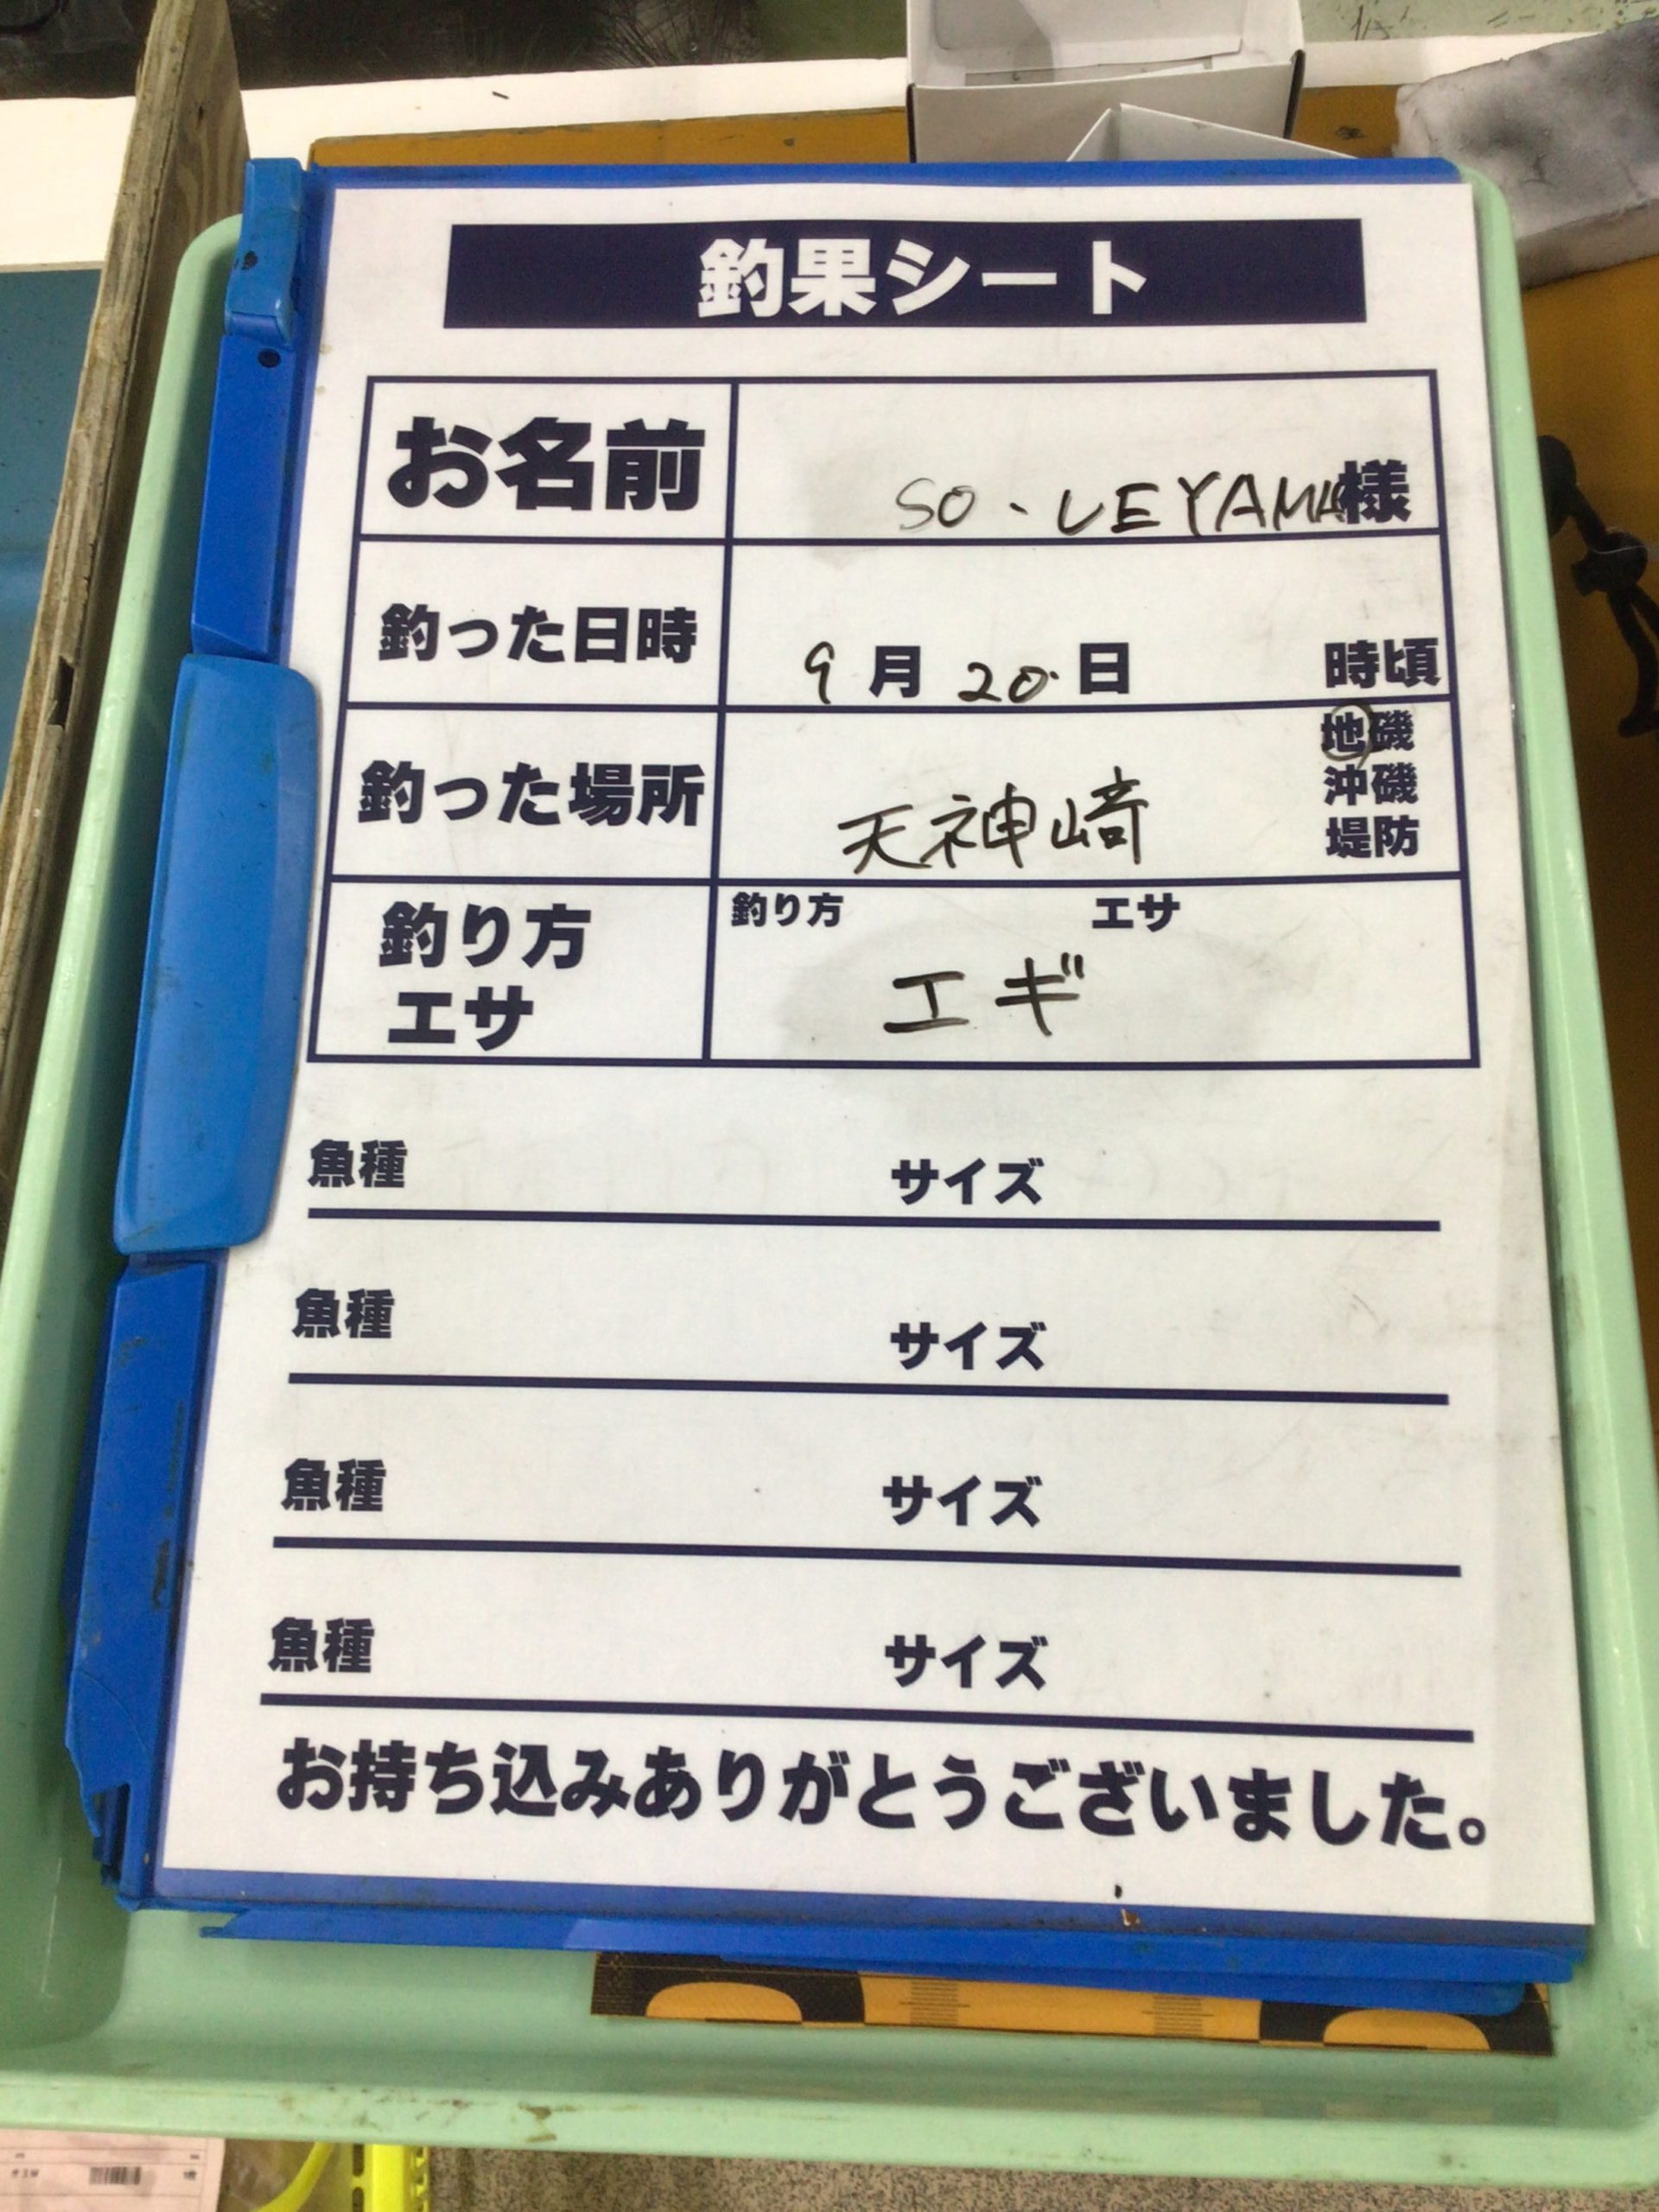 釣果シート
お名前 SO・UEYAMA様
釣った日時 9月20日 時頃
釣った場所 天神崎 地磯
沖磯
堤防
釣り方 エサ
釣り方
エサ
エギ
魚種 サイズ
魚種 サイズ
魚種 サイズ
魚種 サイズ
お持ち込みありがとうございました。